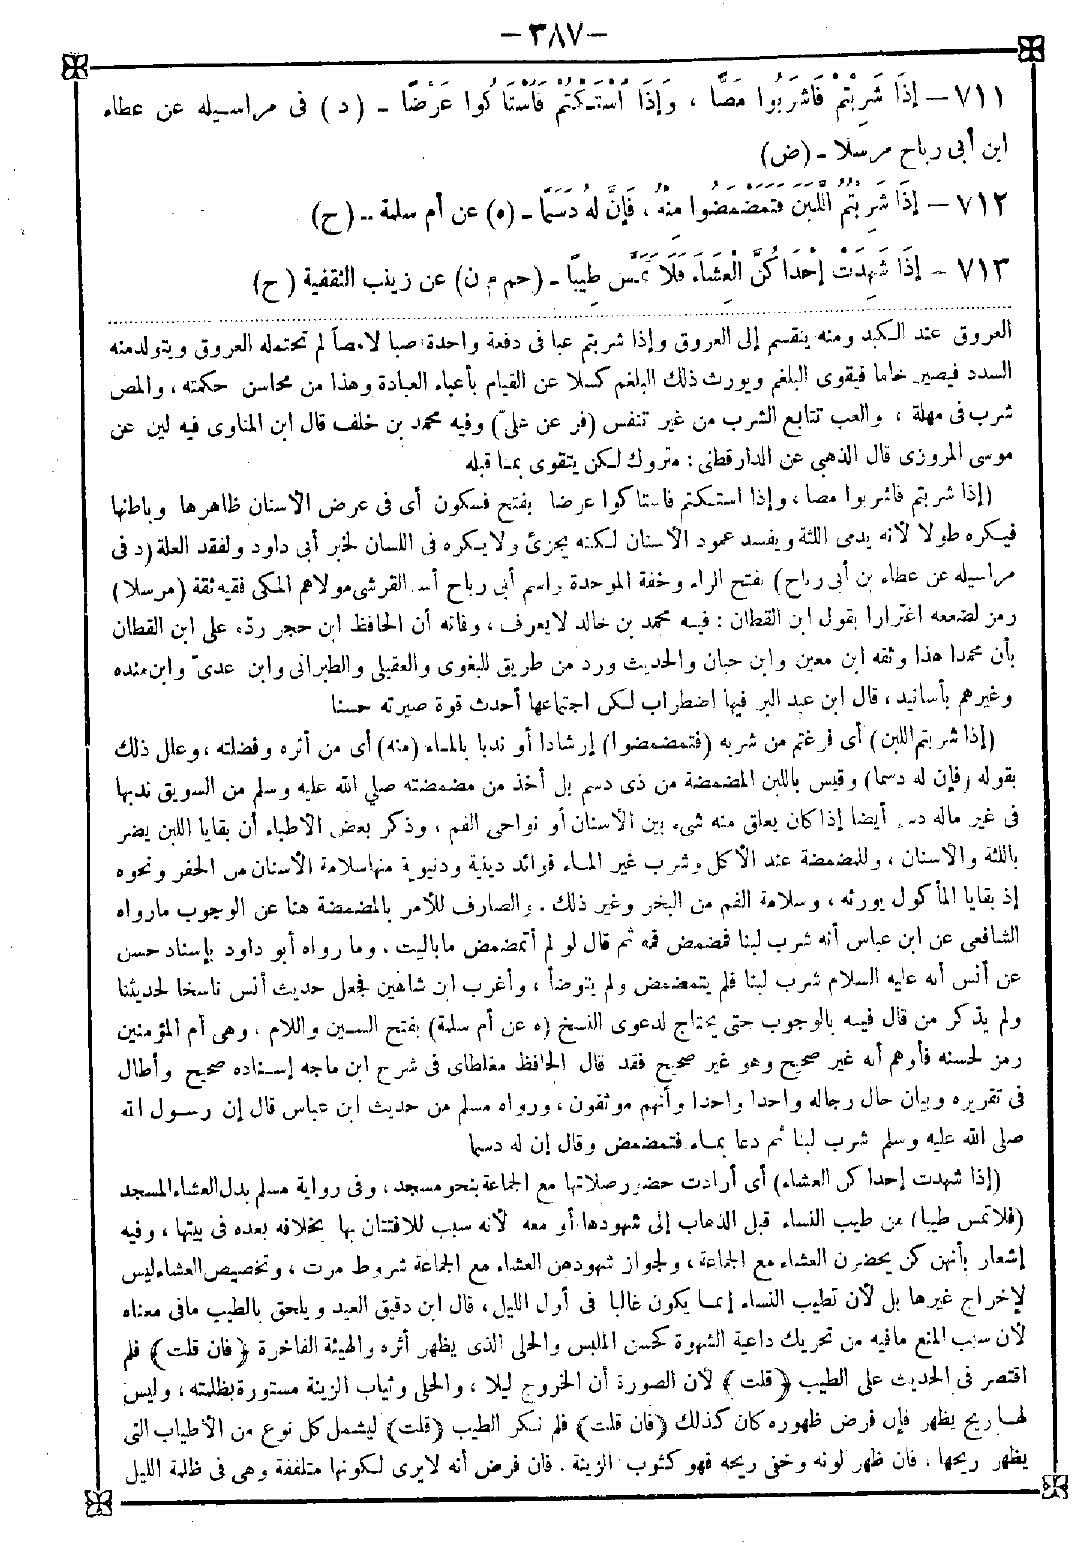 — ٣٨٧ —
٧١١ — إِذَا شَرِبْتُمْ فَاشْرَبُوا مَصًّا ، وَإِذَا اسْتَكْتُمْ فَاسْتَاكُوا عَرْضًا - ( د ) فى مراسيله عن عطاء
ابن أبى رباح مرسلا - (ض)
٧١٢ — إِذَا شَرِبْتُمُ اللَّبَنَ فَتَمَضْمَضُوا مِنْهُ ، فَإِنَّ لَهُ دَسَمًا - (ه) عن أم سلمة - (ح)
٧١٣ - إِذَا شَهِدَتْ إِحْدَاكُنَّ الْعِشَاءَ فَلَا تَمَسَّ طِيبًا - (حم م ن) عن زينب الثقفية (ح)
العروق عند الكبد ومنه ينقسم إلى العروق وإذا شربتم عبا فى دفعة واحدة صبا لا مصاً لم تحتمله العروق ويتولد منه
السدد فيصير خاما فيقوى البلغم ويورث ذلك البلغم كسلا عن القيام بأعباء العبادة وهذا من محاسن حكمته ، والمص
شرب فى مهلة ، والعب تتابع الشرب من غير تنفس (فر عن علىّ) وفيه محمد بن خلف قال ابن المناوى فيه لين عن
موسى المروزى قال الذهبى عن الدارقطنى : متروك لكن يتقوى بما قبله
(إذا شربتم فاشربوا مصا ، وإذا استكتم فاستاكوا عرضا بفتح فسكون أى فى عرض الأسنان ظاهرها وباطنها
فيكره طولا لأنه يدمى اللثة ويفسد عمود الأسنان لكنه يجزئ ولا يكره فى اللسان لخبر أبى داود ولفقد العلة (د فى
مراسيله عن عطاء بن أبى رباح) بفتح الراء وخفة الموحدة واسم أبى رباح أسلم القرشى مولاهم المكى فقيه ثقة (مرسلا)
رمز لضعفه اغترارا بقول ابن القطان : فيه محمد بن خالد لا يعرف ، وفاته أن الحافظ ابن حجر رده على ابن القطان
بأن محمدا هذا وثقه ابن معين وابن حبان والحديث ورد من طريق للبغوى والعقيلى والطبرانى وابن عدىّ وابن منده
وغيرهم بأسانيد ، قال ابن عبد البر فيها اضطراب لكن اجتماعها أحدث قوة صيرته حسنا
(إذا شربتم اللبن) أى فرغتم من شربه (فتمضمضوا) إرشادا أو ندبا بالماء (منه) أى من أثره وفضلته ، وعلل ذلك
بقوله (فإن له دسما) وقيس باللبن المضمضة من ذى دسم بل أخذ من مضمضته صلى الله عليه وسلم من السويق ندبها
فى غير ماله دسم أيضا إذا كان يعلق منه شىء بين الأسنان أو نواحى الفم ، وذكر بعض الأطباء أن بقايا اللبن يضر
باللثة والأسنان ، وللمضمضة عند الأكل وشرب غير الماء فوائد دينية ودنيوية منها سلامة الأسنان من الحفر ونحوه
إذ بقايا المأكول يورثه ، وسلامة الفم من البخر وغير ذلك . والصارف للأمر بالمضمضة هنا عن الوجوب مارواه
الشافعى عن ابن عباس أنه شرب لبنا فمضمض فمه ثم قال لو لم أتمضمض ماباليت . وما رواه أبو داود بإسناد حسن
عن أنس أنه عليه السلام شرب لبنا فلم يتمضمض ولم يتوضأ ، وأغرب ابن شاهين فجعل حديث أنس ناسخا لحديثنا
ولم يذكر من قال فيه بالوجوب حتى يحتاج لدعوى النسخ (ه عن أم سلمة) بفتح السين واللام ، وهى أم المؤمنين
رمز لحسنه فأوهم أنه غير صحيح وهو غير صحيح فقد قال الحافظ مغلطاى فى شرح ابن ماجه إسناده صحيح وأطال
فى تقريره وبيان حال رجاله واحدا واحدا وأنهم موثقون ، ورواه مسلم من حديث ابن عباس قال إن رسول الله
صلى الله عليه وسلم شرب لبنا ثم دعا بماء فتمضمض وقال إن له دسما
(إذا شهدت إحداكن العشاء) أى أرادت حضور صلاتها مع الجماعة بنحو مسجد ، وفى رواية مسلم بدل العشاء المسجد
(فلا تمس طيبا) من طيب النساء قبل الذهاب إلى شهودها أو معه لأنه سبب للافتتان بها بخلافه بعده فى بيتها ، وفيه
إشعار بأنهن كن يحضرن العشاء مع الجماعة ، ولجواز شهودهن العشاء مع الجماعة شروط مرت ، وتخصيص العشاء ليس
لإخراج غيرها بل لأن تطيب النساء إنما يكون غالبا فى أول الليل ، قال ابن دقيق العيد ويلحق بالطيب مافى معناه
لأن سبب المنع مافيه من تحريك داعية الشهوة كحسن الملبس والحلى الذى يظهر أثره والهيئة الفاخرة (فان قلت) فلم
اقتصر فى الحديث على الطيب (قلت) لأن الصورة أن الخروج ليلا ، والحلى وثياب الزينة مستورة بظلمته ، وليس
لها ريح يظهر فإن فرض ظهوره كان كذلك (فان قلت) فلم نكر الطيب (قلت) ليشمل كل نوع من الأطياب التى
يظهر ريحها ، فان ظهر لونه وخفى ريحه فهو كثوب الزينة . فان فرض أنه لايرى لكونها متلففة وهى فى ظلمة الليل